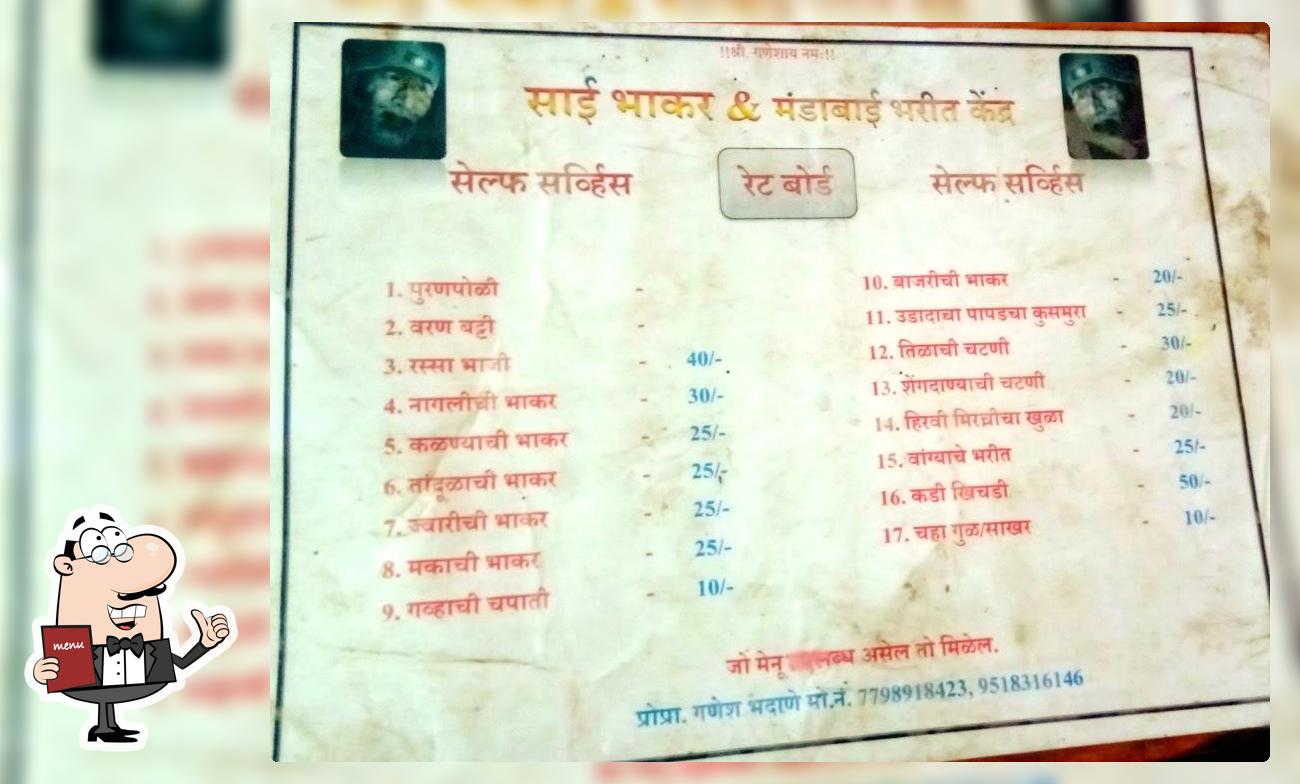 !!श्री. गणेशाय नमः!!
साई भाकर & मंडाबाई भरीत केंद्र
सेल्फ सर्व्हिस रेट बोर्ड सेल्फ सर्व्हिस
1. पुरणपोळी -
2. वरण बट्टी -
3. रस्सा भाजी - 40/-
4. नागलीची भाकर - 30/-
5. कळण्याची भाकर - 25/-
6. तांदूळाची भाकर - 25/-
7. ज्वारीची भाकर - 25/-
8. मकाची भाकर - 25/-
9. गव्हाची चपाती - 10/-
10. बाजरीची भाकर - 20/-
11. उडादाचा पापडचा कुसमुरा - 25/-
12. तिळाची चटणी - 30/-
13. शेंगदाण्याची चटणी - 20/-
14. हिरवी मिरचीचा खुळा - 20/-
15. वांग्याचे भरीत - 25/-
16. कडी खिचडी - 50/-
17. चहा गुळ/साखर - 10/-
जो मेनू असेल तो मिळेल.
प्रोप्रा. गणेश भदाणे मो.नं. 7798918423, 9518316146
menu